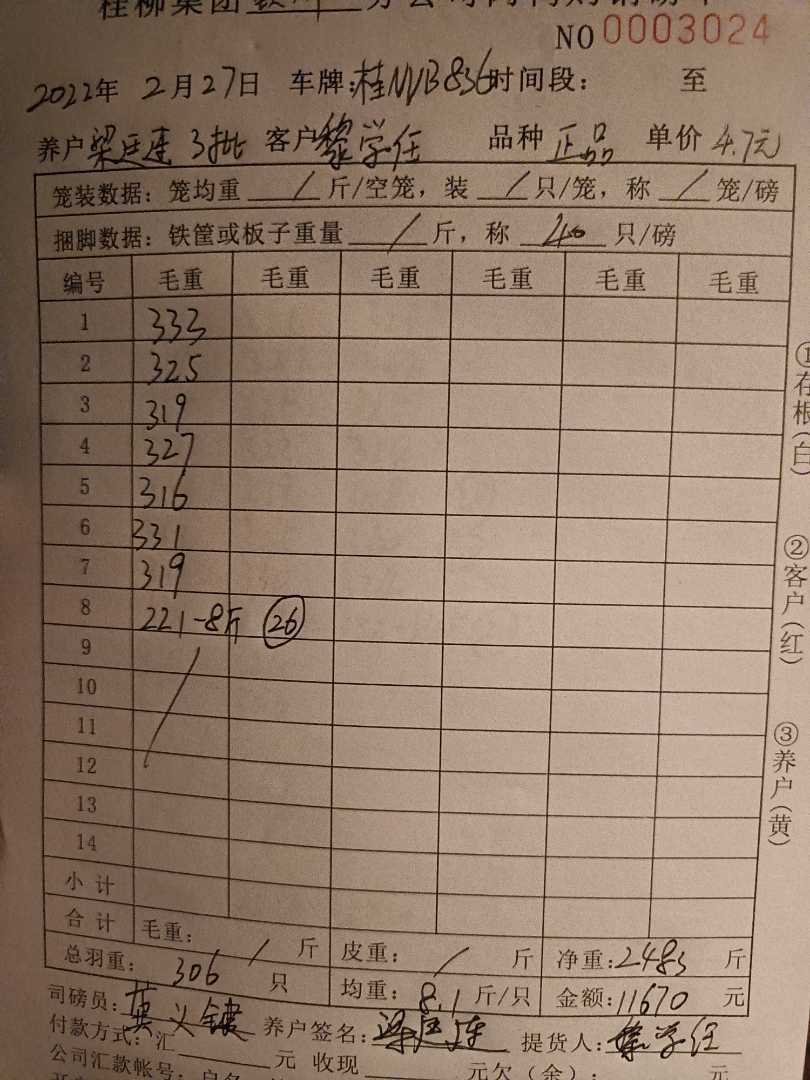 桂柳集团钦州分公司肉鸭购销磅单
NO 0003024
2022年 2月27日 车牌:桂NVB836时间段: 至
养户梁廷连 3批 客户黎学任 品种 正品 单价 4.7元
笼装数据: 笼均重 / 斤/空笼, 装 / 只/笼, 称 / 笼/磅
捆脚数据: 铁筐或板子重量 / 斤, 称 40 只/磅
编号 毛重 毛重 毛重 毛重 毛重 毛重
1 333
2 325
3 319
4 327
5 316
6 331
7 319
8 221-8斤 26
9
10
11
12
13
14
小计
合计 毛重: / 斤 皮重: / 斤 净重:2483 斤
总羽重: 306 只 均重: 8.1 斤/只 金额:11670 元
司磅员: 莫义键 养户签名: 梁廷连 提货人: 黎学任
付款方式: 汇 元 收现 元欠(余): 元
公司汇款帐号: 户名
①存根(白)
②客户(红)
③养户(黄)